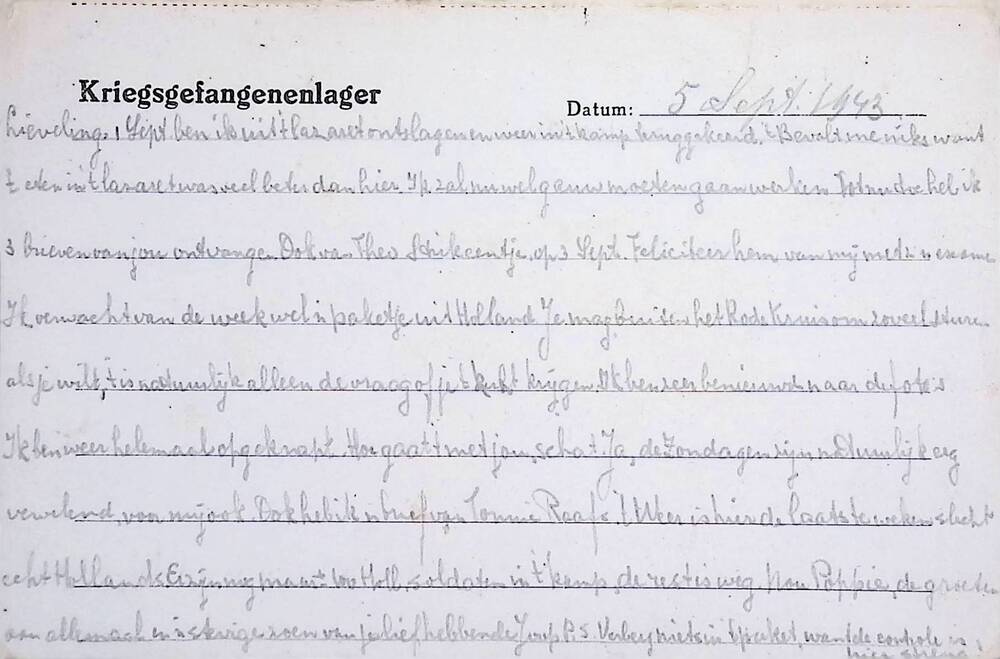 Kriegsgefangenenlager
Datum: 5 Sept. 1943
Lieveling, 1 Sept. ben ik uit 't lazaret ontslagen en weer in 't kamp teruggekeerd. 't Bevalt me niks want
't eten in 't lazaret was veel beter dan hier. Ik zal nu wel gauw moeten gaan werken. Tot nu toe heb ik
3 brieven van jou ontvangen. Ook van Theo eentje, op 3 Sept. Feliciteer hem van mij met z'n examen
Ik verwacht van de week wel 'n paketje uit Holland. Je mag buiten het Rode Kruis om zoveel sturen
als je wilt, 't is natuurlijk alleen de vraag of je 't krijgen. Ik ben zeer benieuwd naar de foto's
Ik ben weer helemaal opgeknapt. Hoe gaat 't met jou, schat. Ja, de Zondagen zijn natuurlijk erg
vervelend, voor mij ook. Ook heb ik 'n brief van Tonnie Raafs. 't Weer is hier de laatste weken slecht
echt Hollands. Er zijn nog maar Holl. soldaten in 't kamp, de rest is weg. Nou Poppie, de groeten
aan allemaal en 'n stevige zoen van je liefhebbende Joop P.S. Verberg niets in 't paket, want de controle is
hier streng.